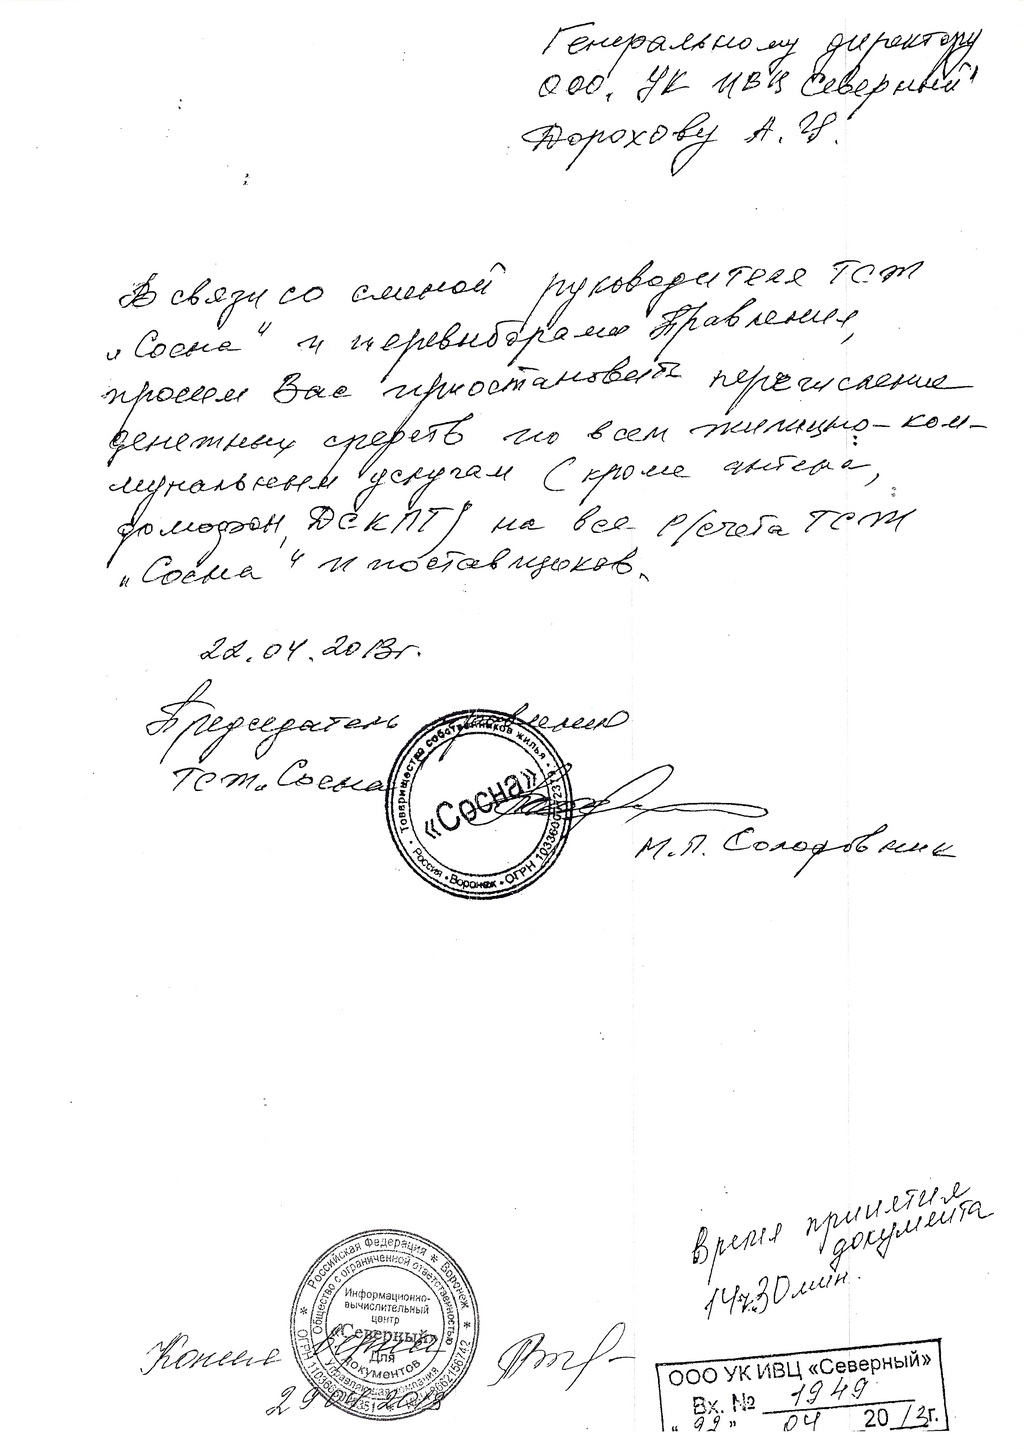 Генеральному директору
ООО "УК ИВЦ Северный"
Дорохову А.И.
В связи со сменой руководителя ТСЖ
"Сосна" и перевыборами Правления,
просим Вас приостановить перечисление
денежных средств по всем жилищно-ком-
мунальным услугам (кроме антенна,
домофон, ДСКПТ) на все р/счета ТСЖ
"Сосна" и поставщиков.
22.04.2013г.
Председатель правления
ТСЖ "Сосна"
Товарищество собственников жилья
«Сосна»
Россия • Воронеж • ОГРН
М.П. Солодовник
время принятия
документа
14ч.30мин.
Российская Федерация * Воронеж *
Общество с ограниченной ответственностью
Информационно-
вычислительный
центр
«Северный»
Для
документов
Управляющая компания
Копия верна
29.04.2013
ООО УК ИВЦ «Северный»
Вх. № 1949
"22" 04 2013г.